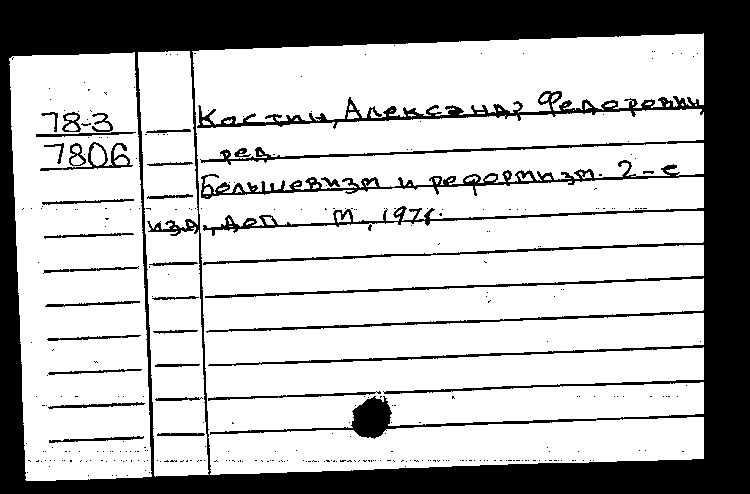 78-3 Костин, Александр Федорович,
7806 ред.
Большевизм и реформизм. 2-е
изд., доп. М.,